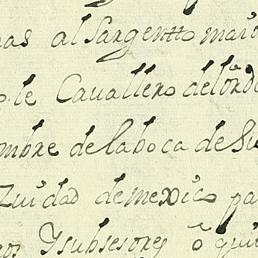 as al Sargento maio
le Cauallero delord
mbre de laboca de Su
Zuidad demexico pa
Ysubsesores ô qui